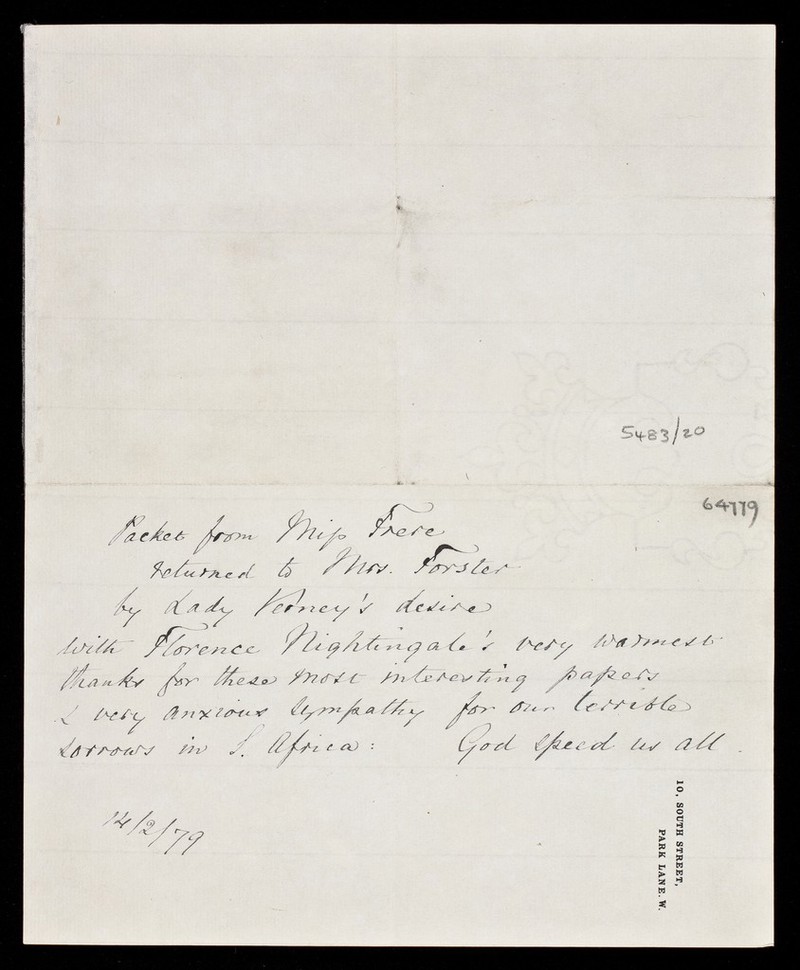 5483/20
64779
Packet from Miss Frere
returned to Mrs. Forster
by Lady Verney's desire
with Florence Nightingale's very warmest
thanks for these most interesting papers
& very anxious sympathy for our terrible
sorrows in S. Africa: God speed us all.
14/2/79
10, SOUTH STREET,
PARK LANE. W.